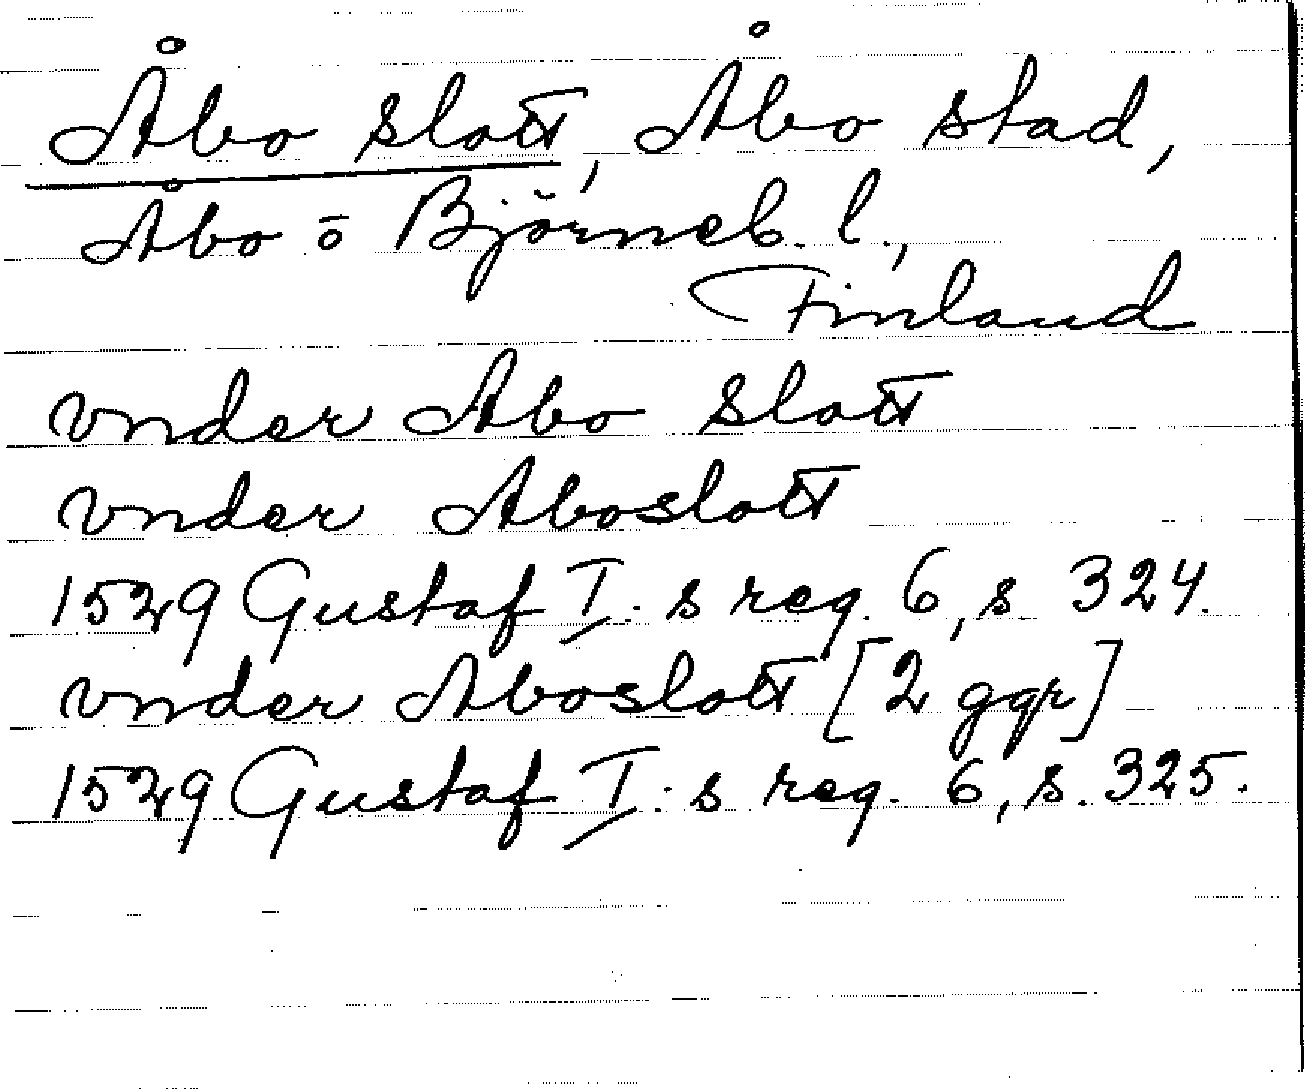 Åbo slott, Åbo stad,
Åbo o Björneb. l.,
Finland
vnder Abo slott
vnder Aboslott
1529 Gustaf I:s reg. 6, s 324.
vnder Aboslott [2 ggr]
1529 Gustaf I:s reg. 6, s. 325.